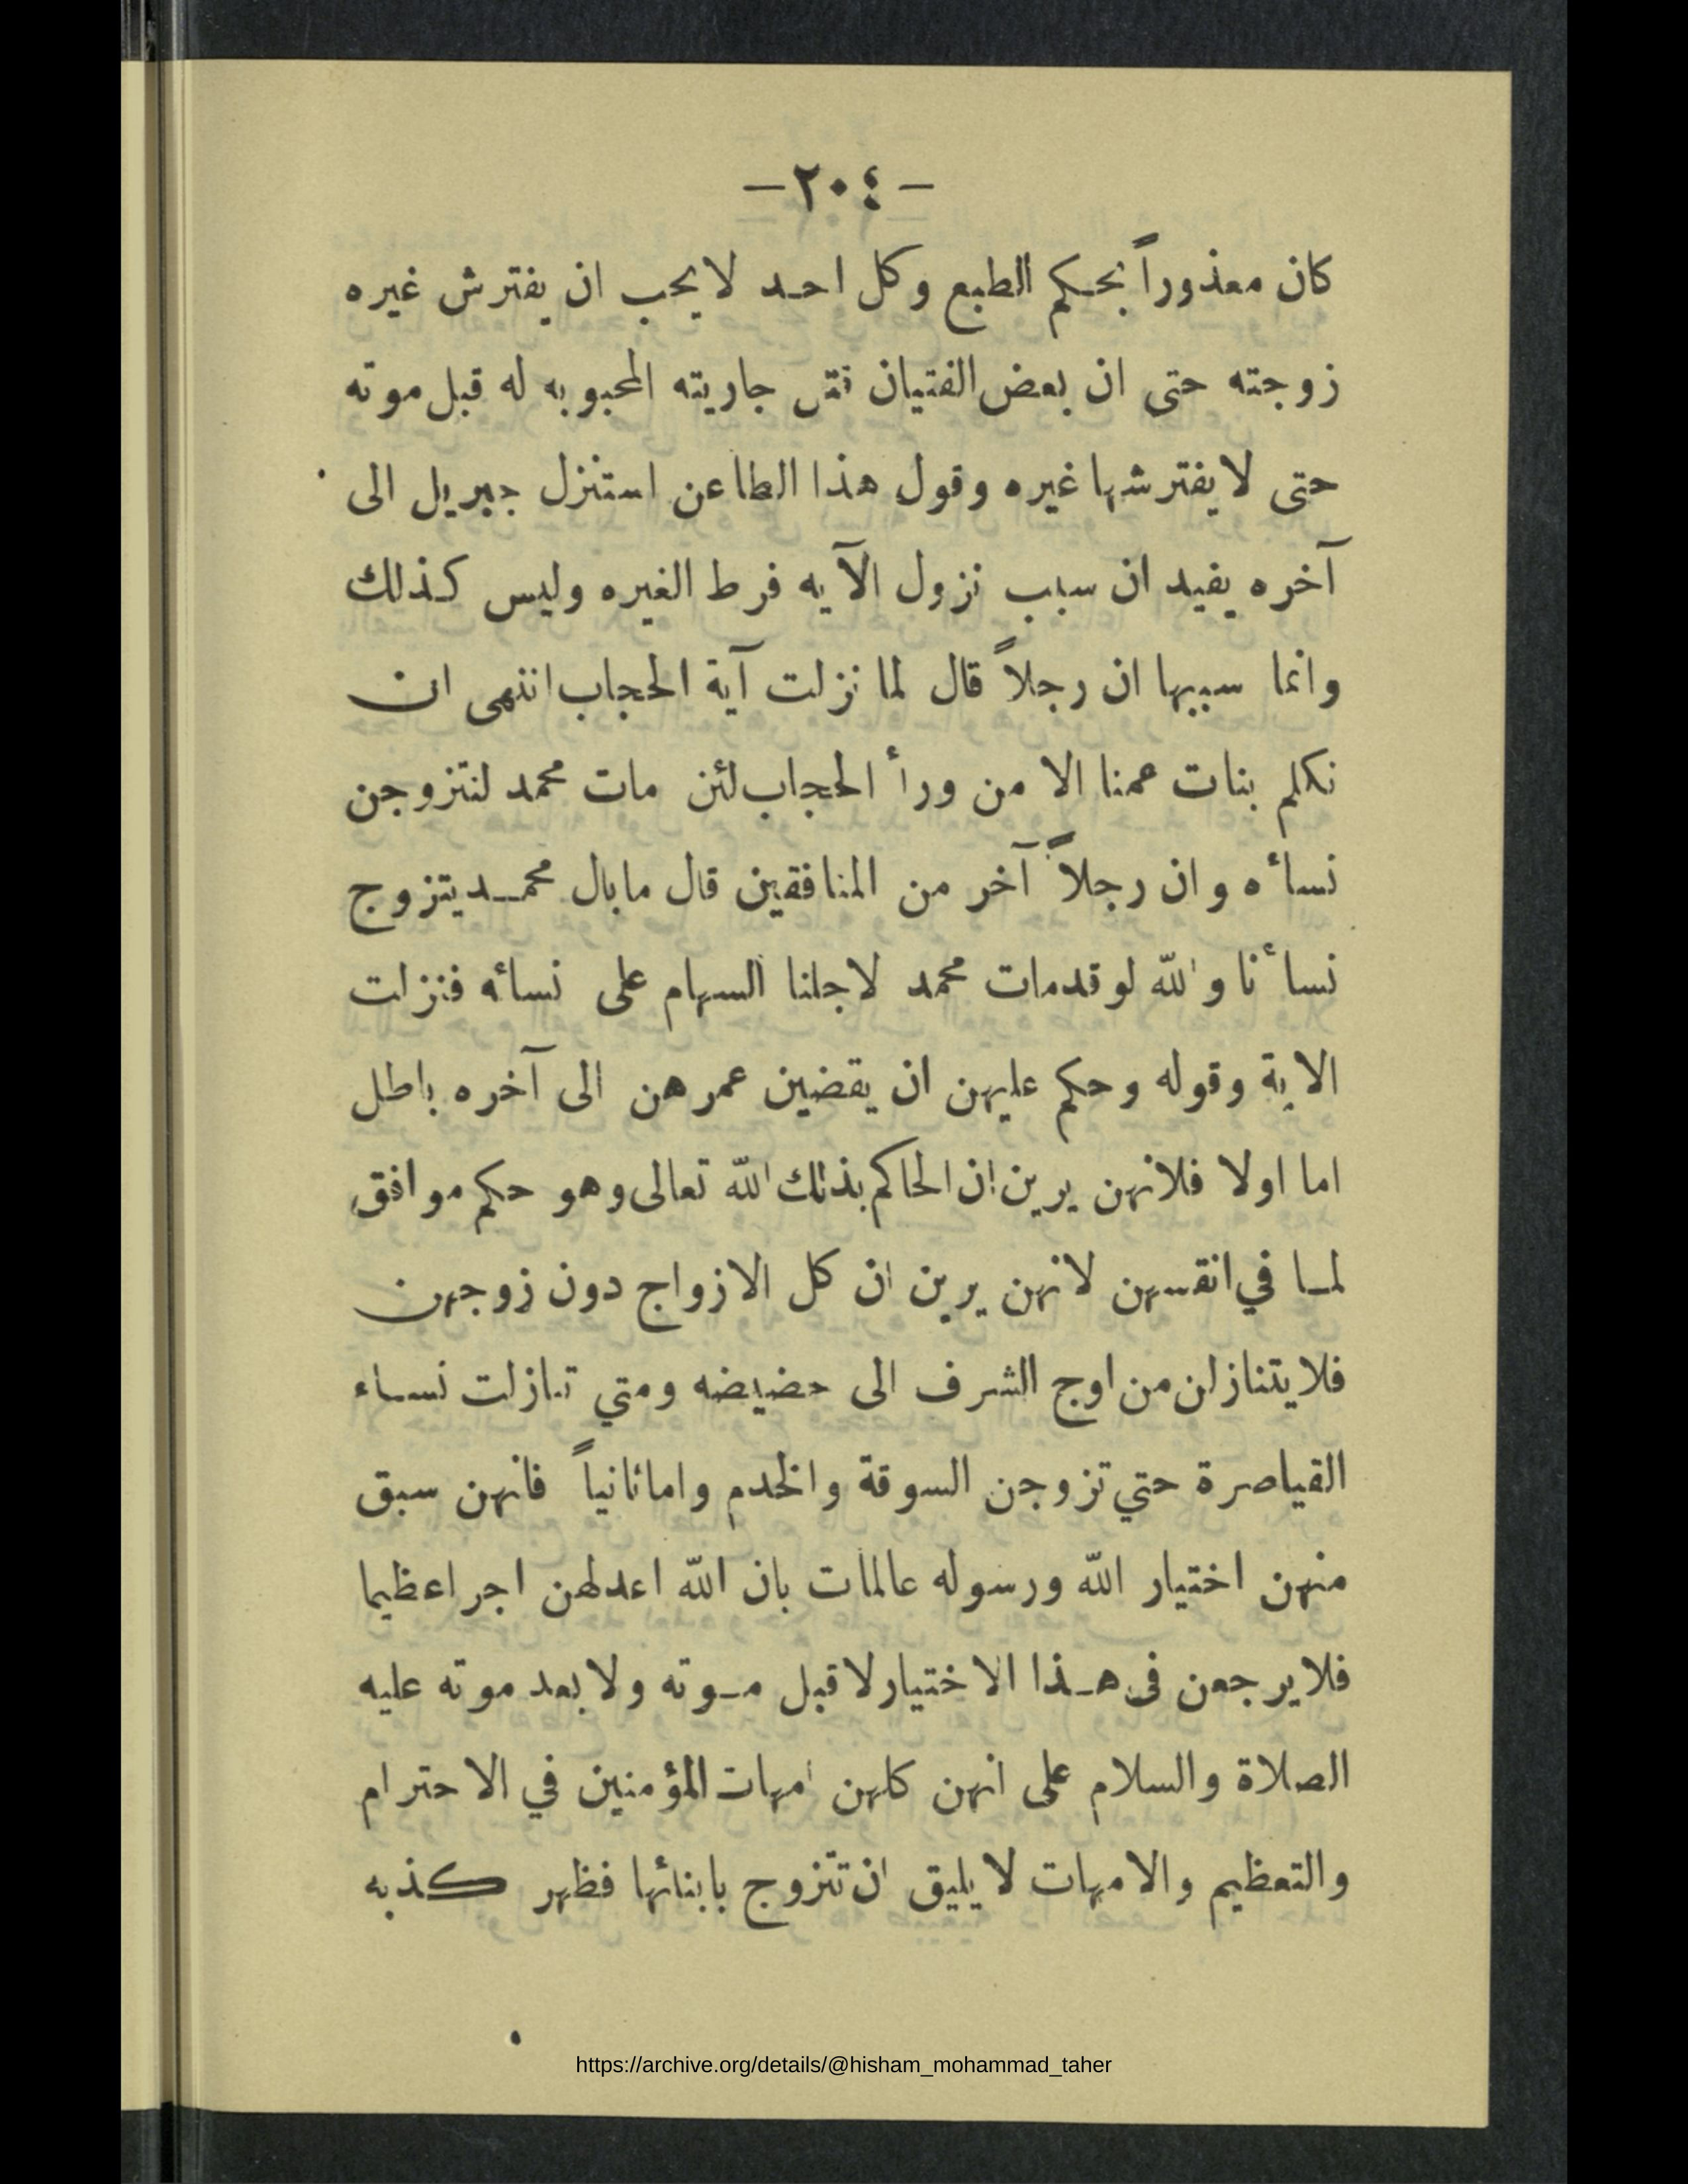 — ٢٠٤ —
كان معذوراً بحكم الطبع وكل احد لا يحب ان يفترش غيره
زوجته حتى ان بعض الفتيان قتل جاريته المحبوبه له قبل موته
حتى لا يفترشها غيره وقول هذا الطاعن استنزل جبريل الى
آخره يفيد ان سبب نزول الآيه فرط الغيره وليس كذلك
وانما سببها ان رجلاً قال لما نزلت آية الحجاب انتهى ان
نكلم بنات عمنا الا من ورأ الحجاب لئن مات محمد لنتزوجن
نسأه وان رجلاً آخر من المنافقين قال مابال محمد يتزوج
نسأنا والله لو قدمات محمد لاجلنا السهام على نسائه فنزلت
الاية وقوله وحكم عليهن ان يقضين عمرهن الى آخره باطل
اما اولا فلانهن يرين ان الحاكم بذلك الله تعالى وهو حكم موافق
لما في انفسهن لانهن يرين ان كل الازواج دون زوجهن
فلا يتنازلن من اوج الشرف الى حضيضه ومتي تنازلت نساء
القياصرة حتي تزوجن السوقة والخدم واماثانياً فانهن سبق
منهن اختيار الله ورسوله عالمات بان الله اعدلهن اجر اعظيما
فلا يرجعن فى هذا الاختيار لا قبل موته ولا بعد موته عليه
الصلاة والسلام على انهن كلهن امهات المؤمنين في الاحترام
والتعظيم والامهات لا يليق ان تتزوج بابنائها فظهر كذبه
https://archive.org/details/@hisham_mohammad_taher